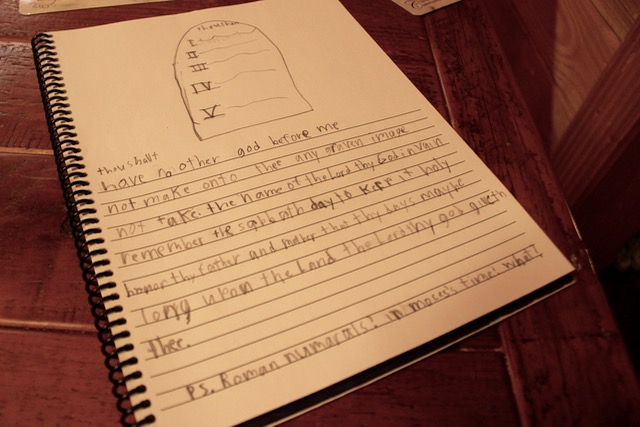 thoushalt
I
II
III
IV
V
thoushalt
have no other god before me
not make onto thee any graven image
not take the name of the lord thy God in vain
remember the sabbrath day to keep it holy
honor thy father and mother that thy days maybe
long upon the land the Lord thy god giveth
Thee.
PS. Roman numarals? in moses's time! what?